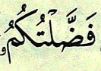 فَضَّلْتُكُمْ